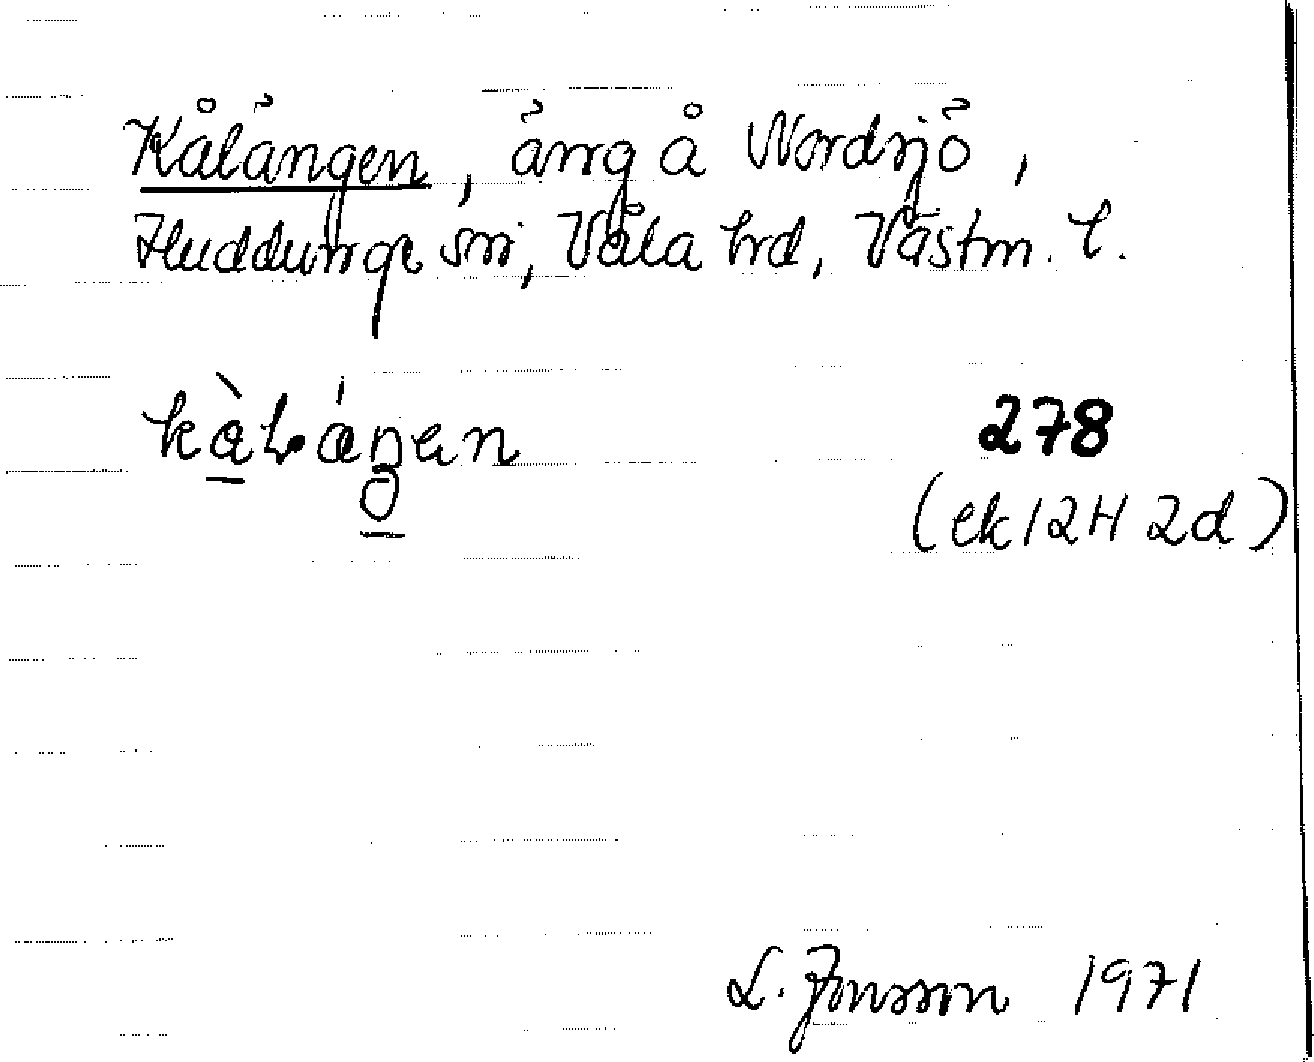 Kålängen, äng å Nordsjö,
Huddunge sn, Våla hrd, Västm. l.
278
(ek 12H 2d)
L. Jonsson 1971